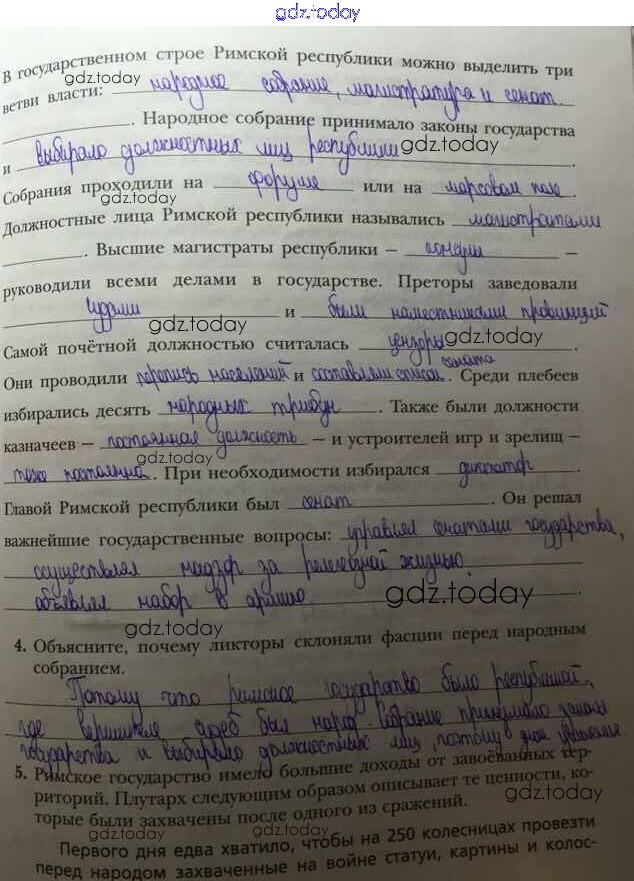 gdz.today
В государственном строе Римской республики можно выделить три
gdz.today
ветви власти: народное собрание, магистратура и сенат.
. Народное собрание принимало законы государства
и выбирало должностных лиц республики gdz.today .
Собрания проходили на форуме или на марсовом поле.
gdz.today
Должностные лица Римской республики назывались магистратами
. Высшие магистраты республики – консулы –
руководили всеми делами в государстве. Преторы заведовали
судами и были наместниками провинций
gdz.today
Самой почётной должностью считалась цензоры gdz.today .
сената
Они проводили перепись населений и составляли список . Среди плебеев
избирались десять народных трибун . Также были должности
gdz.today
казначеев – постоянная должность – и устроителей игр и зрелищ –
gdz.today
тоже постоянна . При необходимости избирался диктатор .
Главой Римской республики был сенат . Он решал
важнейшие государственные вопросы: управлял государства,
gdz.today
осуществлял надзор за жизнью,
объявлял набор в армию gdz.today .
gdz.today
4. Объясните, почему ликторы склоняли фасции перед народным
собранием.
Потому что римское государство было республикой,
где был народ. Собрание принимало законы
государства и выбирало должностных лиц, поэтому
5. Римское государство имело большие доходы от завоёванных тер-
риторий. Плутарх следующим образом описывает те ценности, ко-
gdz.today
торые были захвачены после одного из сражений.
gdz.today
Первого дня едва хватило, чтобы на 250 колесницах провезти
перед народом захваченные на войне статуи, картины и колос-
gdz.today